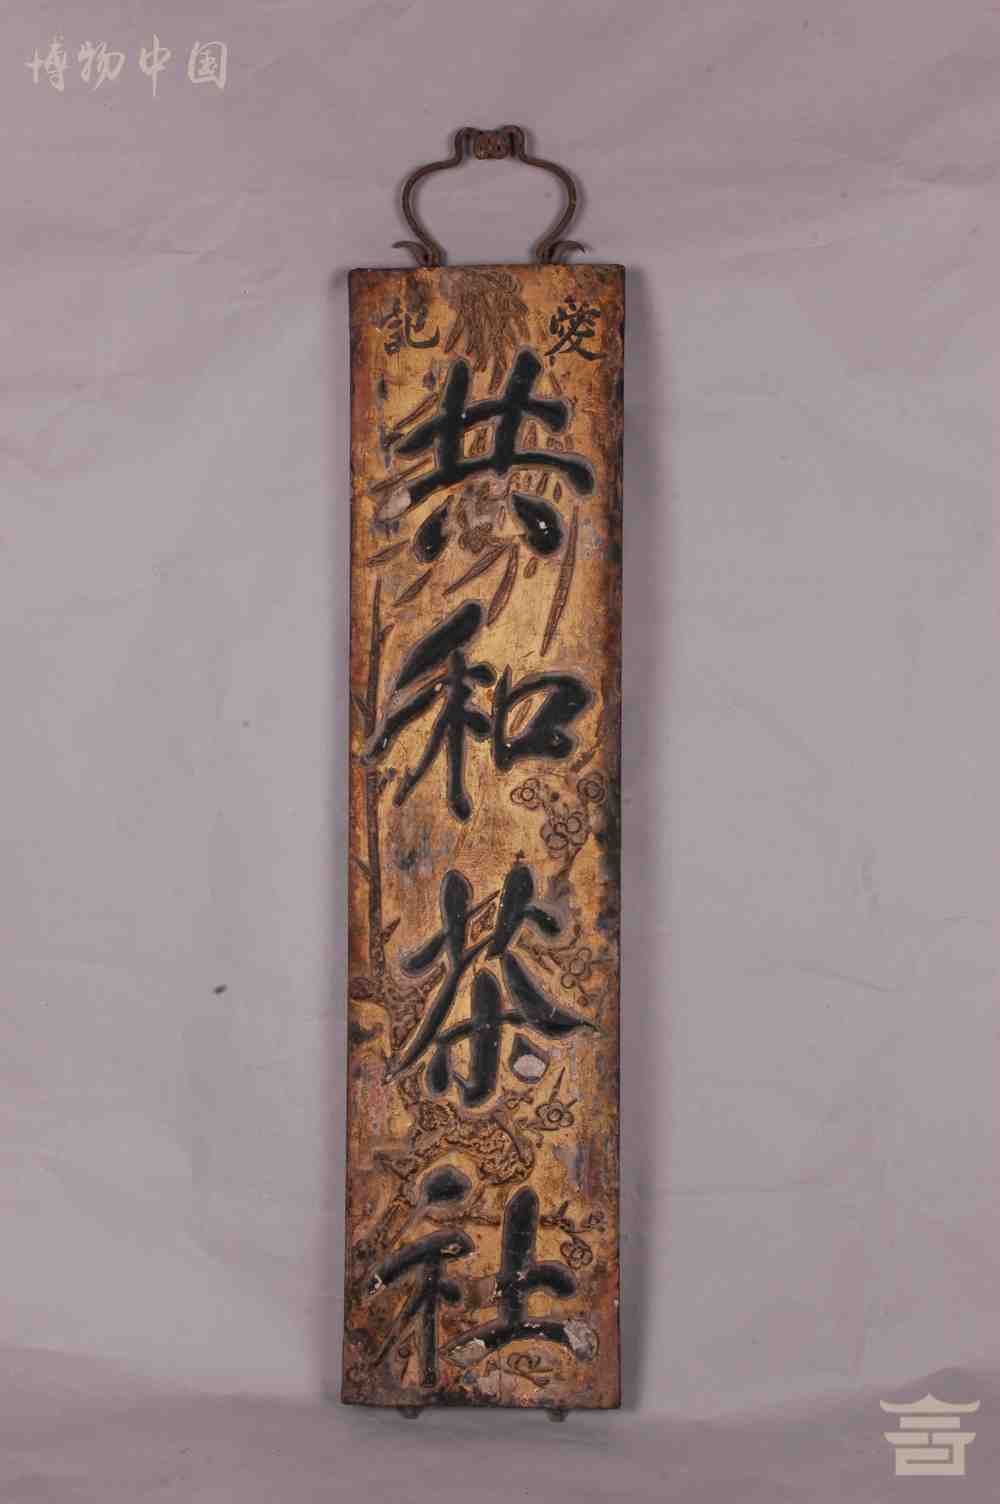 博物中国
愛記
共和茶社